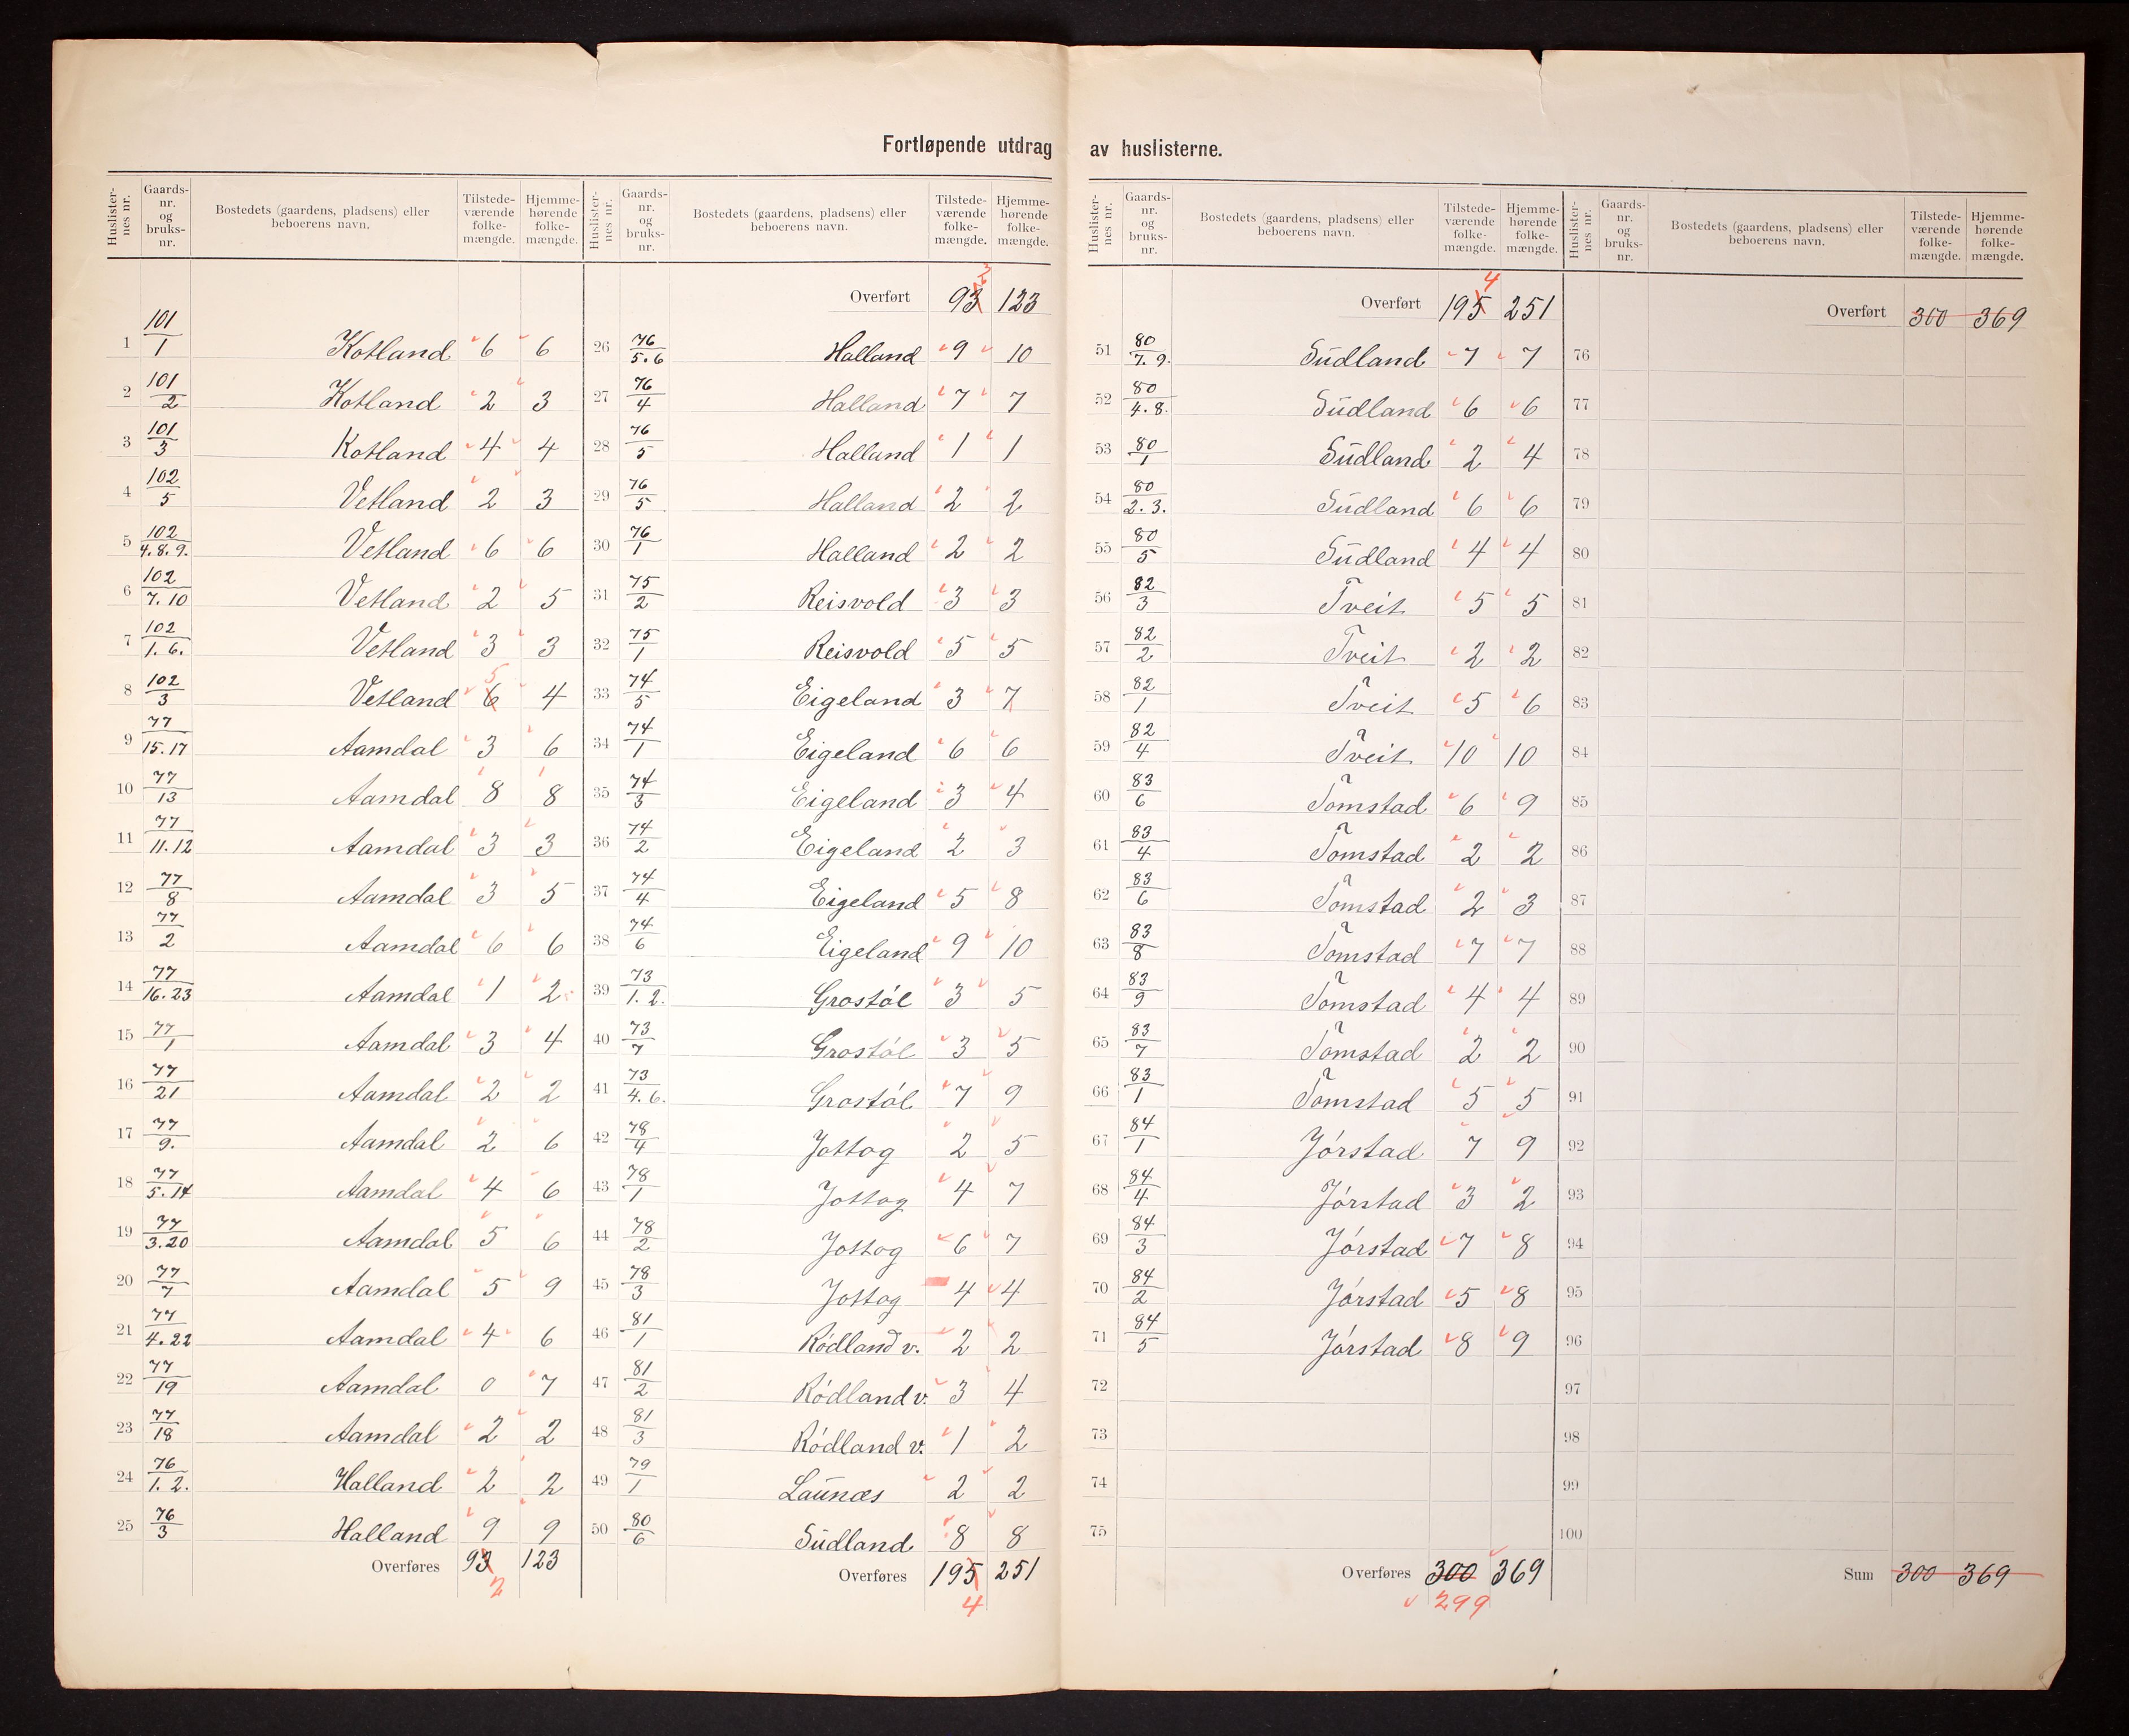 Fortløpende utdrag av huslisterne.
Huslisternes nr. | Gaardsnr. og bruksnr. | Bostedets (gaardens, pladsens) eller beboerens navn. | Tilstedeværende folkemængde. | Hjemmehørende folkemængde.
1 101/1 Kotland 6 6
2 101/2 Kotland 2 3
3 101/3 Kotland 4 4
4 102/5 Vetland 2 3
5 102/4.8.9. Vetland 6 6
6 102/7.10 Vetland 2 5
7 102/1.6. Vetland 3 3
8 102/3 Vetland 6 5 4
9 77/15.17 Aamdal 3 6
10 77/13 Aamdal 8 8
11 77/11.12 Aamdal 3 3
12 77/8 Aamdal 3 5
13 77/2 Aamdal 6 6
14 77/16.23 Aamdal 1 2
15 77/1 Aamdal 3 4
16 77/21 Aamdal 2 2
17 77/9. Aamdal 2 6
18 77/5.14 Aamdal 4 6
19 77/3.20 Aamdal 5 6
20 77/7 Aamdal 5 9
21 77/4.22 Aamdal 4 6
22 77/19 Aamdal 0 7
23 77/18 Aamdal 2 2
24 76/1.2. Halland 2 2
25 76/3 Halland 9 9
Overføres 93 2 123
Huslisternes nr. | Gaardsnr. og bruksnr. | Bostedets (gaardens, pladsens) eller beboerens navn. | Tilstedeværende folkemængde. | Hjemmehørende folkemængde.
Overført 93 2 123
26 76/5.6 Halland 9 10
27 76/4 Halland 7 7
28 76/5 Halland 1 1
29 76/5 Halland 2 2
30 76/1 Halland 2 2
31 75/2 Reisvold 3 3
32 75/1 Reisvold 5 5
33 74/5 Eigeland 3 7
34 74/1 Eigeland 6 6
35 74/3 Eigeland 3 4
36 74/2 Eigeland 2 3
37 74/4 Eigeland 5 8
38 74/6 Eigeland 9 10
39 73/1.2. Grostøl 3 5
40 73/7 Grostøl 3 5
41 73/4.6. Grostøl 7 9
42 78/4 Jottog 2 5
43 78/1 Jottog 4 7
44 78/2 Jottog 6 7
45 78/3 Jottog 4 4
46 81/1 Rødland v. 2 2
47 81/2 Rødland v. 3 4
48 81/3 Rødland v. 1 2
49 79/1 Launæs 2 2
50 80/6 Sudland 8 8
Overføres 195 4 251
Huslisternes nr. | Gaardsnr. og bruksnr. | Bostedets (gaardens, pladsens) eller beboerens navn. | Tilstedeværende folkemængde. | Hjemmehørende folkemængde.
Overført 195 4 251
51 80/7.9. Sudland 7 7
52 80/4.8. Sudland 6 6
53 80/1 Sudland 2 4
54 80/2.3. Sudland 6 6
55 80/5 Sudland 4 4
56 82/3 Tveit 5 5
57 82/2 Tveit 2 2
58 82/1 Tveit 5 6
59 82/4 Tveit 10 10
60 83/6 Tomstad 6 9
61 83/4 Tomstad 2 2
62 83/6 Tomstad 2 3
63 83/8 Tomstad 7 7
64 83/9 Tomstad 4 4
65 83/7 Tomstad 2 2
66 83/1 Tomstad 5 5
67 84/1 Jørstad 7 9
68 84/4 Jørstad 3 2
69 84/3 Jørstad 7 8
70 84/2 Jørstad 5 8
71 84/5 Jørstad 8 9
72
73
74
75
Overføres 300 369
299
Huslisternes nr. | Gaardsnr. og bruksnr. | Bostedets (gaardens, pladsens) eller beboerens navn. | Tilstedeværende folkemængde. | Hjemmehørende folkemængde.
Overført 300 369
76
77
78
79
80
81
82
83
84
85
86
87
88
89
90
91
92
93
94
95
96
97
98
99
100
Sum 300 369